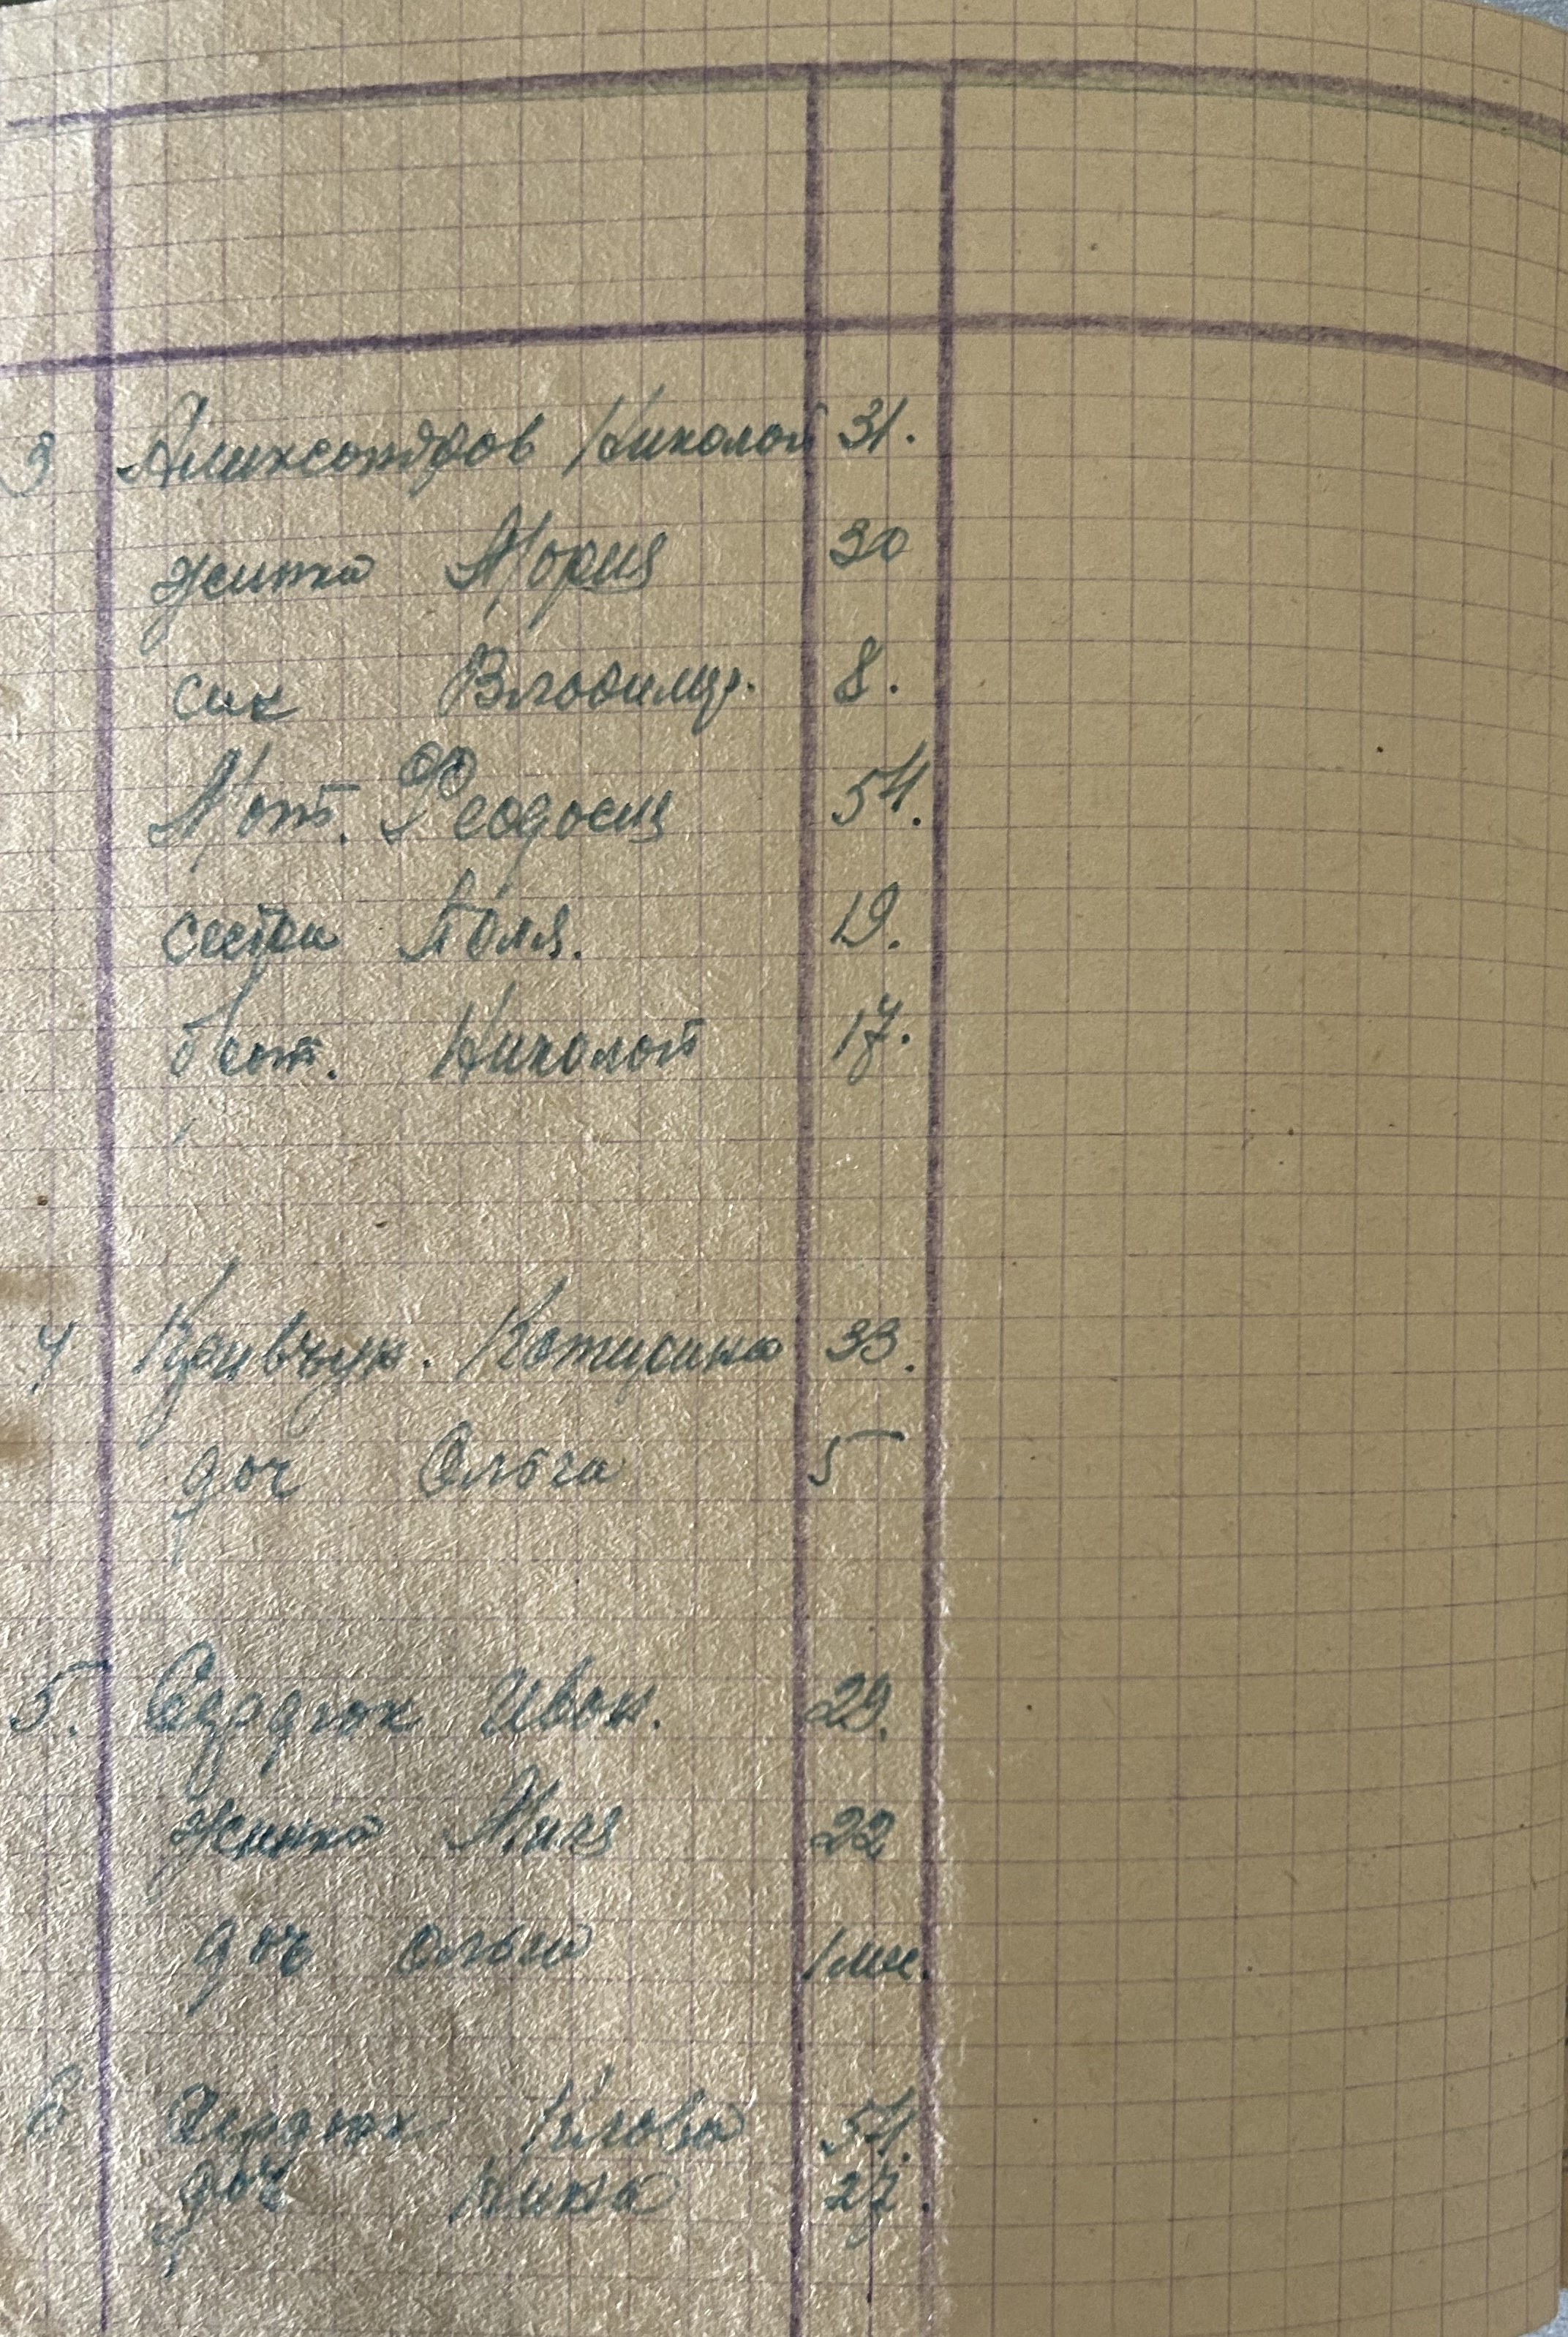 3 Аликсондров Николой 31.
жинка Мория 30
син Влодимир. 8.
Мот. Феодосия 54.
сестра Поля. 19.
брат. Николой 17.
4 Кривчун. Котирина 33.
доч Ольга 5
5. Сердюк Иван. 29.
жинка Лидя 22
доч Ольга 1 мис.
6 Сердюк Клова 54.
доч Нина 27.